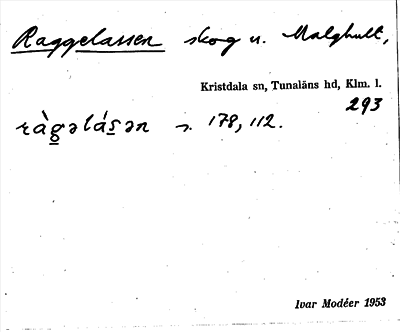 Raggelassen skog u. Malghult,
Kristdala sn, Tunaläns hd, Klm. l.
293
ràg̲əlás̲ən s. 178, 112.
Ivar Modéer 1953